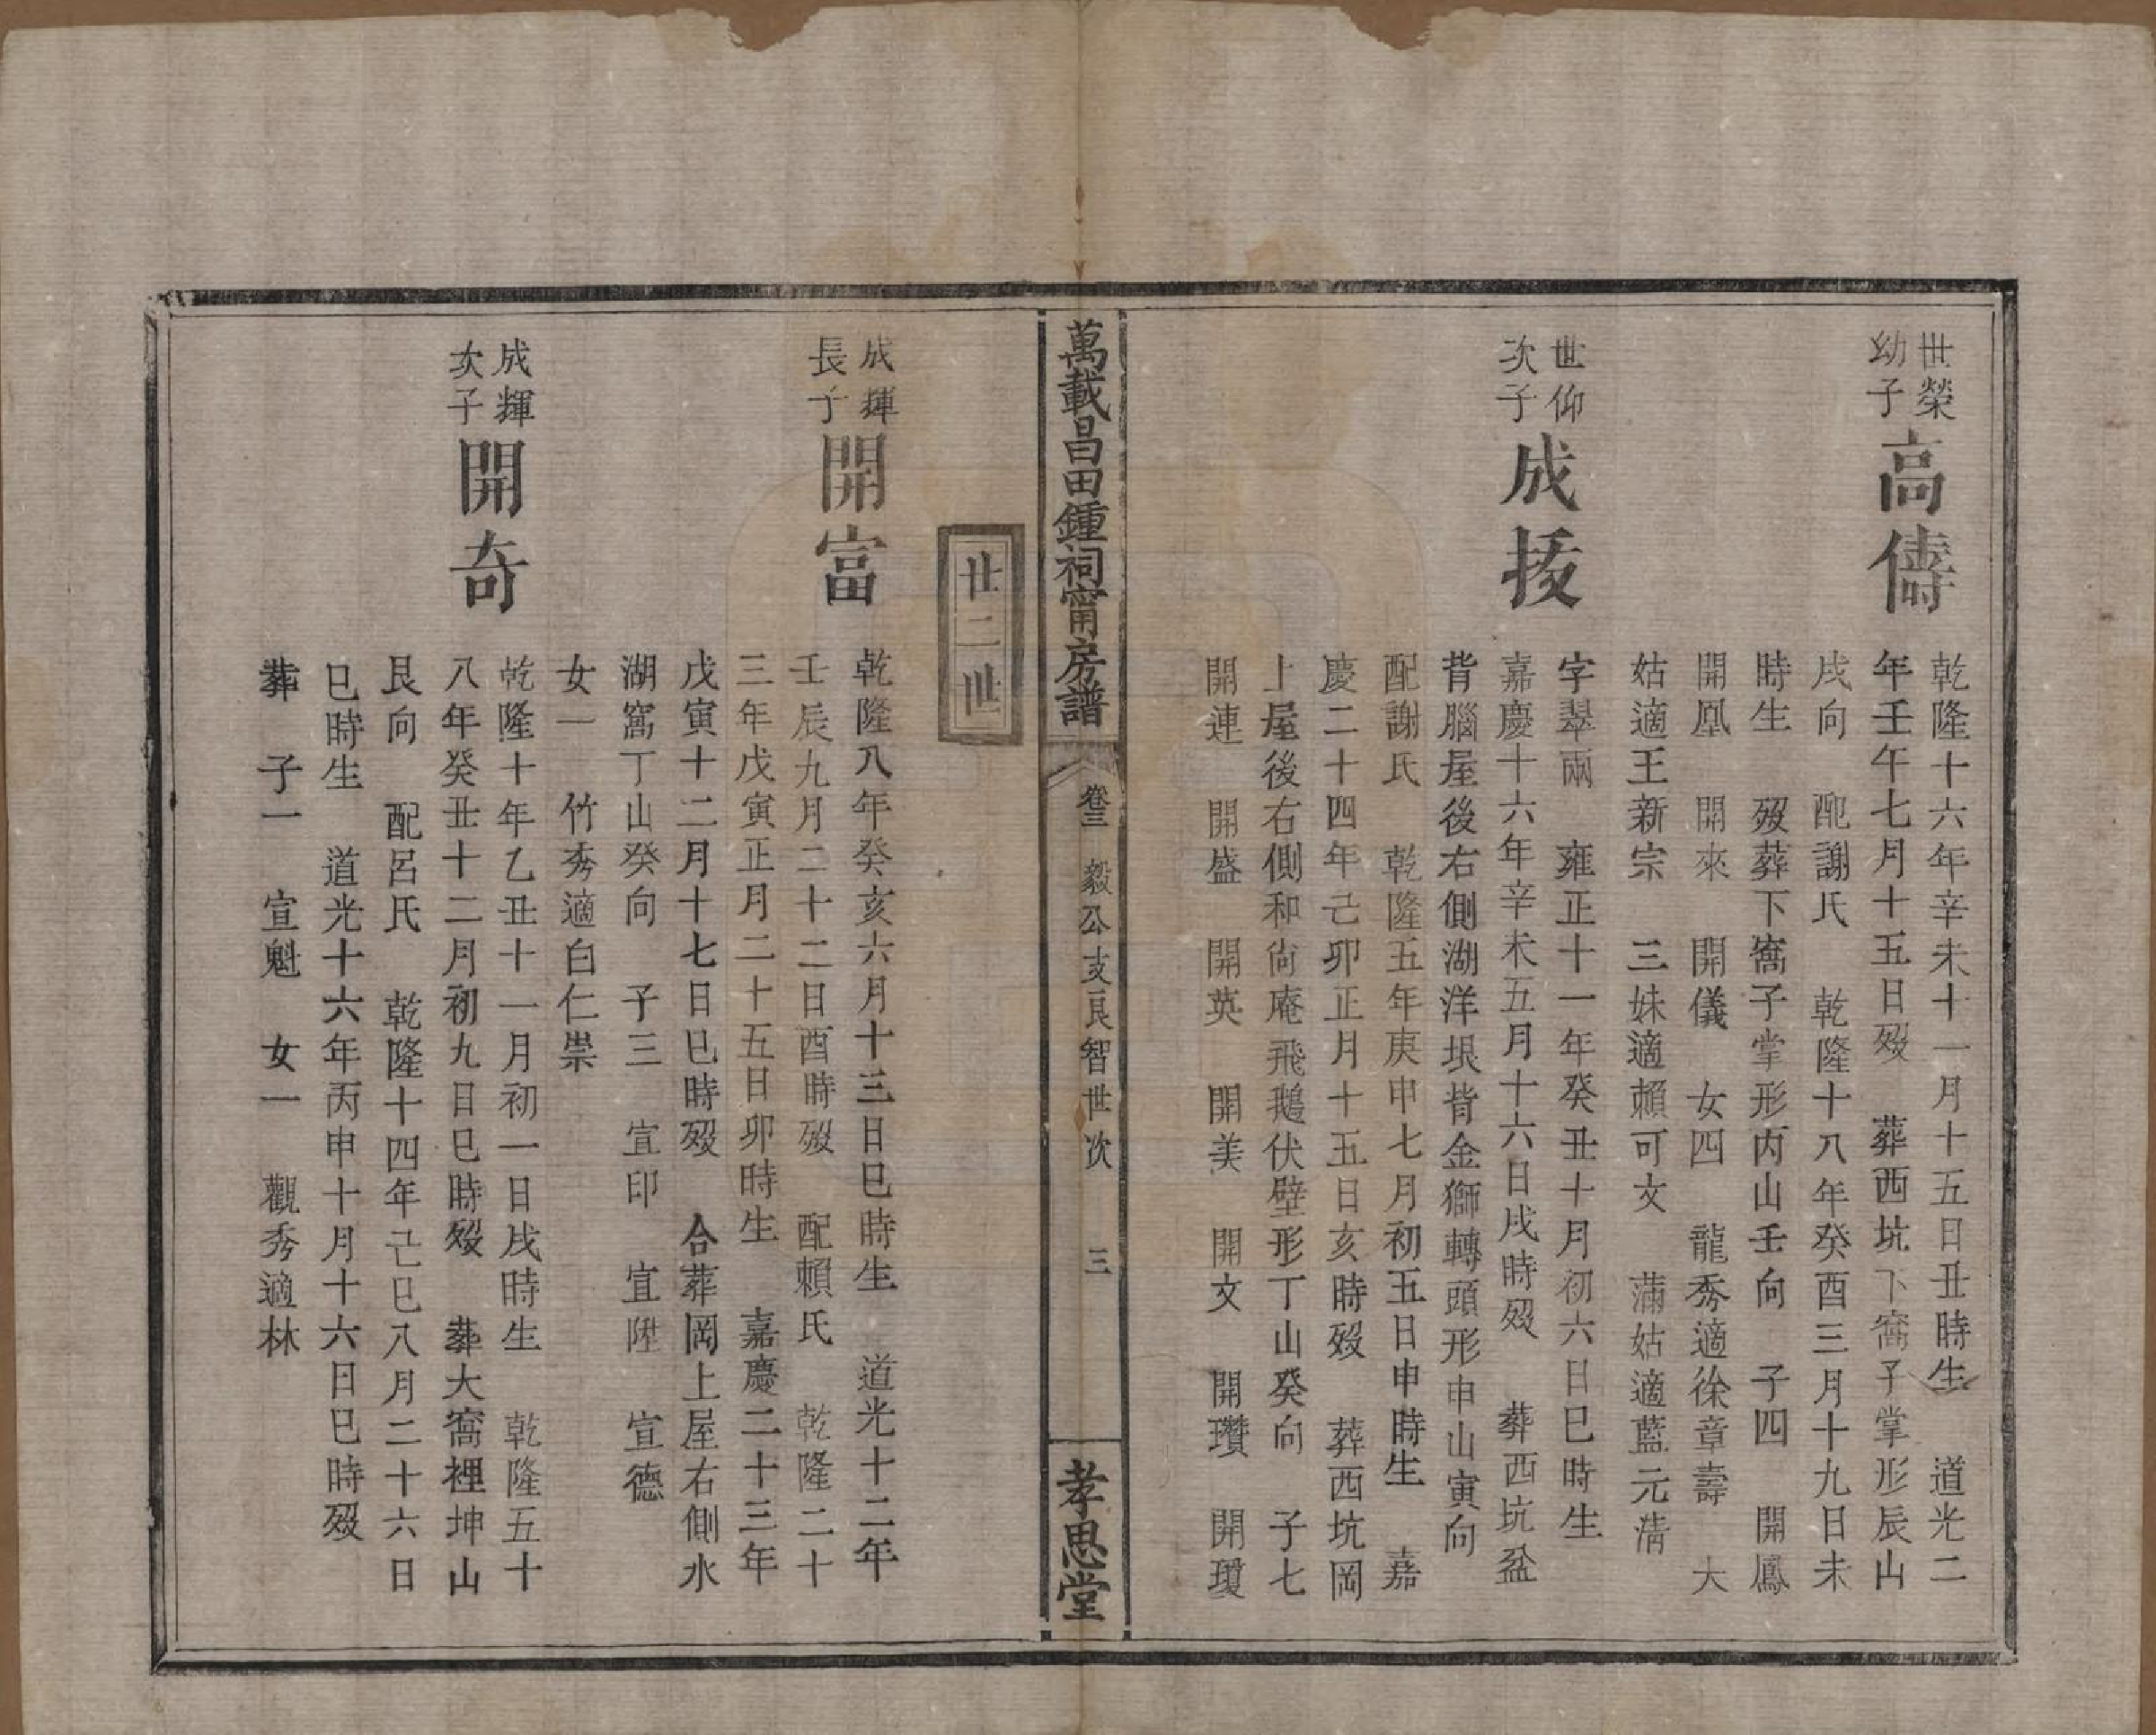 世榮
幼子
高儔
乾隆十六年辛未十一月十五日丑時生 道光二
年壬午七月十五日歿 葬西坑下窩子掌形辰山
戌向 配謝氏 乾隆十八年癸酉三月十九日未
時生 歿葬下窩子掌形丙山壬向 子四 開鳳
開凰 開來 開儀 女四 龍秀適徐章壽 大
姑適王新宗 三妹適賴可文 蒲姑適藍元淸
世仰
次子
成拔
字翠兩 雍正十一年癸丑十月初六日巳時生
嘉慶十六年辛未五月十六日戌時歿 葬西坑盆
背腦屋後右側湖洋垠背金獅轉頭形申山寅向
配謝氏 乾隆五年庚申七月初五日申時生 嘉
慶二十四年己卯正月十五日亥時歿 葬西坑岡
上屋後右側和尙庵飛鵝伏壁形丁山癸向 子七
開連 開盛 開英 開美 開文 開瓚 開瓊
萬載昌田鍾祠甯房譜 卷三 毅公支良智世次 三 孝思堂
廿二世
成輝
長子
開富
乾隆八年癸亥六月十三日巳時生 道光十二年
壬辰九月二十二日酉時歿 配賴氏 乾隆二十
三年戊寅正月二十五日卯時生 嘉慶二十三年
戊寅十二月十七日巳時歿 合葬岡上屋右側水
湖窩丁山癸向 子三 宣印 宣陞 宣德
女一 竹秀適白仁崇
成輝
次子
開奇
乾隆十年乙丑十一月初一日戌時生 乾隆五十
八年癸丑十二月初九日巳時歿 葬大窩裡坤山
艮向 配呂氏 乾隆十四年己巳八月二十六日
巳時生 道光十六年丙申十月十六日巳時歿
葬 子一 宣魁 女一 觀秀適林